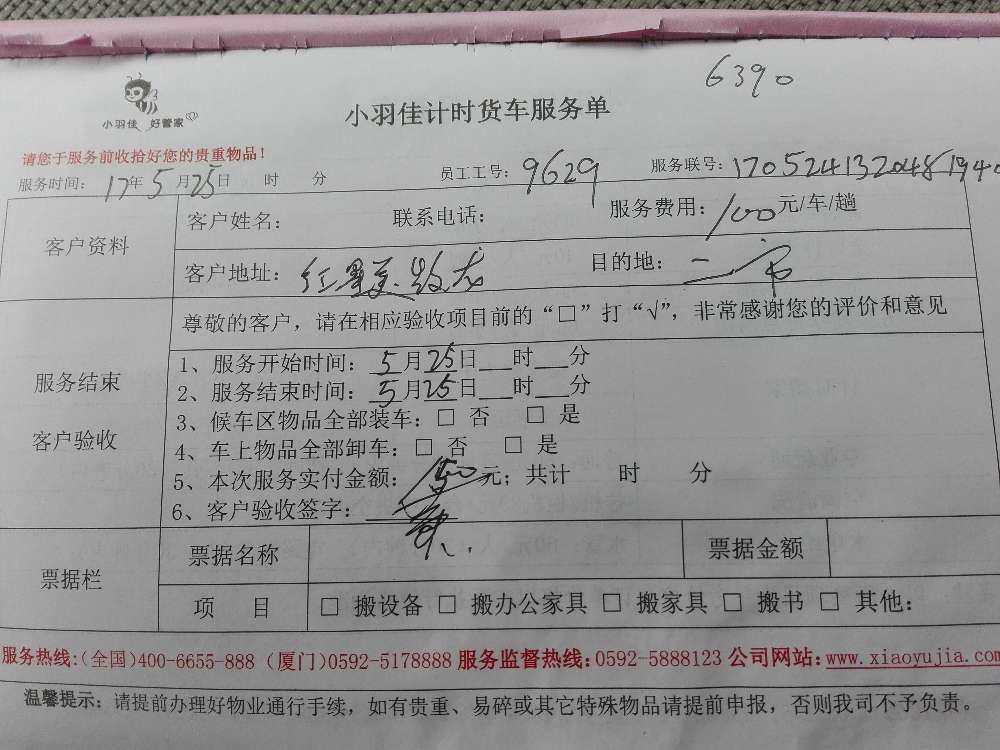 6390
小羽佳 好管家
小羽佳计时货车服务单
请您于服务前收拾好您的贵重物品！
服务时间： 17年 5月25日 时 分 员工工号：9629 服务联号：170524132048194
客户资料
客户姓名： 联系电话： 服务费用：100元/车/趟
客户地址：红星美 目的地：二市
服务结束
客户验收
尊敬的客户，请在相应验收项目前的“□”打“√”，非常感谢您的评价和意见
1、服务开始时间：5月25日___时___分
2、服务结束时间：5月25日___时___分
3、候车区物品全部装车：□ 否 □ 是
4、车上物品全部卸车：□ 否 □ 是
5、本次服务实付金额：元；共计 时 分
6、客户验收签字：
票据栏
票据名称 票据金额
项 目 □ 搬设备 □ 搬办公家具 □ 搬家具 □ 搬书 □ 其他：
服务热线:(全国)400-6655-888 (厦门)0592-5178888 服务监督热线:0592-5888123 公司网站:www.xiaoyujia.com
温馨提示：请提前办理好物业通行手续，如有贵重、易碎或其它特殊物品请提前申报，否则我司不予负责。